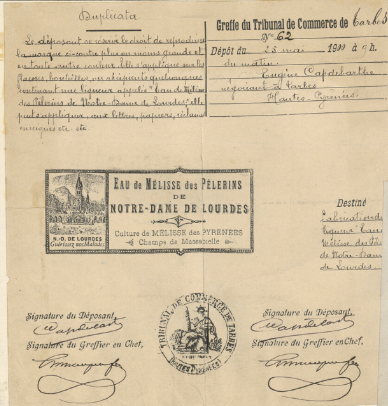 Duplicata
Le déposant se réserve le droit de reproduire
la marque ci-contre plus ou moins grande et
en toute autre couleur. Elle s'applique sur les
flacons, bouteilles ou récipients quelconques
contenant une liqueur appelée "Eau de Mélisse
des Pèlerins de Notre-Dame de Lourdes" elle
peut s'appliquer aux lettres, papiers, réclames
Greffe du Tribunal de Commerce de Tarbes
N° 62
Dépôt du 25 mai 1900 à 9 h.
du matin.
Eugène Capdebarthe
négociant à Tarbes
Hautes-Pyrénées.
EAU DE MÉLISSE DES PÈLERINS
DE
NOTRE-DAME DE LOURDES
Culture de MÉLISSE des PYRÉNÉES
Champs de Massabielle
N.-D. DE LOURDES
Guérissez nos Malades
Destiné
Fabrication de
liqueur Eau
Mélisse des Pèl
de Notre-Dame
de Lourdes.
Signature du Déposant
Signature du Greffier en Chef,
TRIBUNAL DE COMMERCE DE TARBES
Signature du Déposant.
Signature du Greffier en Chef.